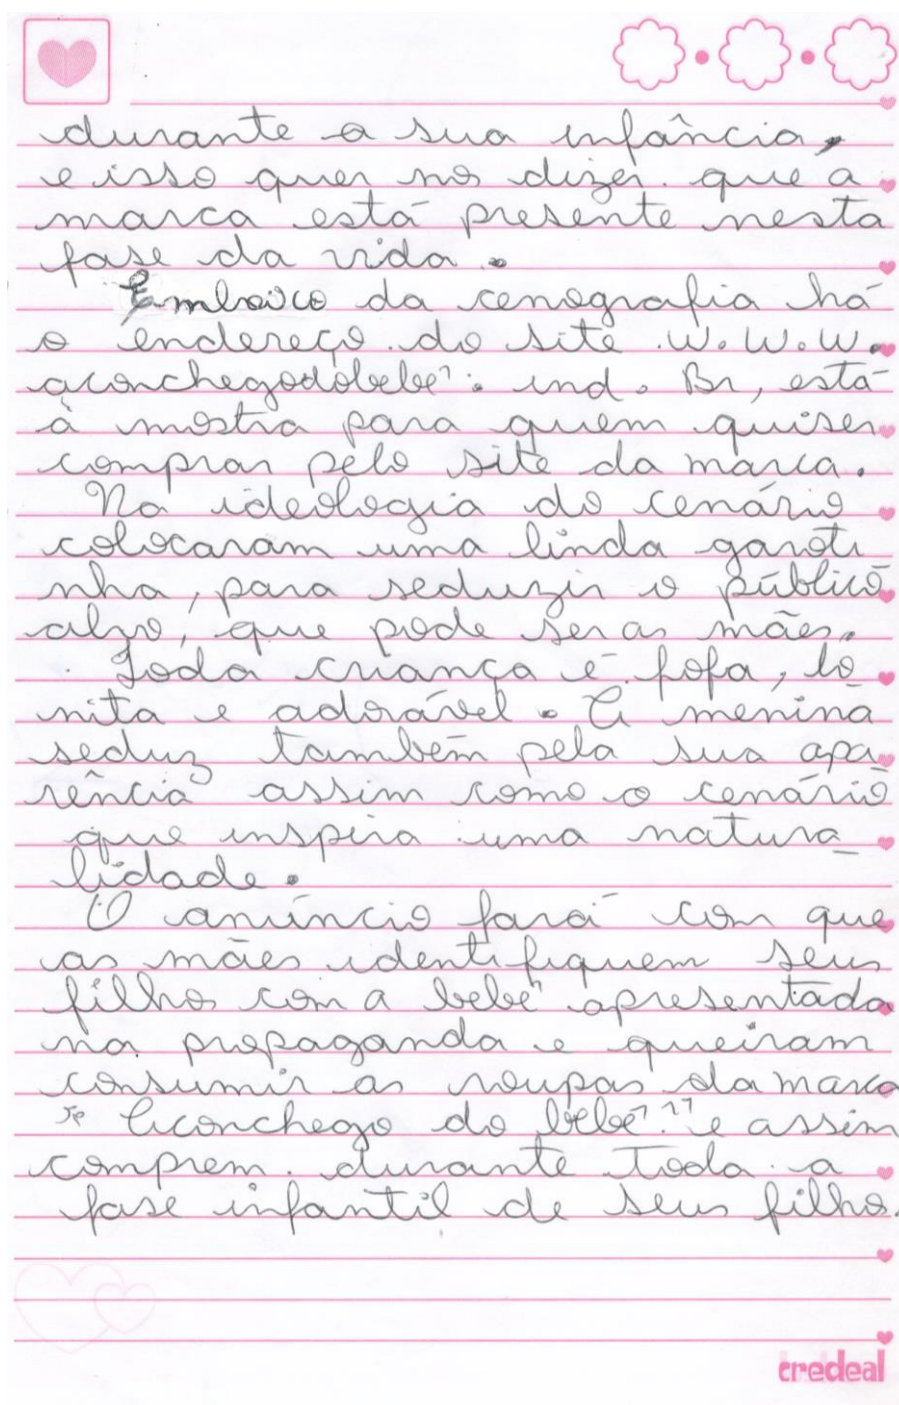 durante a sua infância,
e isso quer nos dizer que a
marca está presente nesta
fase da vida.
Embaixo da cenografia há
o endereço do site w.w.w.
aconchegodobebê. ind. Br, está
à mostra para quem quiser
comprar pelo site da marca.
Na ideologia do cenário
colocaram uma linda garoti
nha, para seduzir o público
alvo, que pode ser as mães.
Toda criança é fofa, bo
nita e adorável. A menina
seduz também pela sua apa
rência assim como o cenário
que inspira uma natura
lidade.
O anúncio fará com que
as mães identifiquem seus
filhos com a bebê apresentada
na propaganda e queiram
consumir as roupas da marca
"Aconchego do bebê" e assim
comprem durante toda a
fase infantil de seus filhos.
credeal